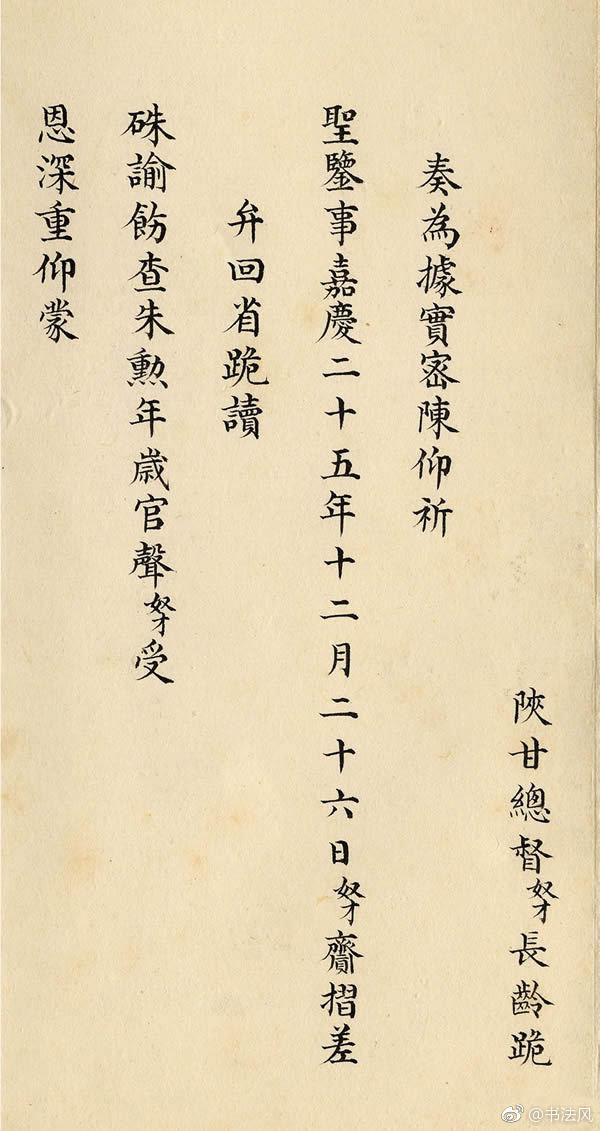 陝甘總督奴才長齡跪
奏為據實密陳仰祈
聖鑒事嘉慶二十五年十二月二十六日奴才齎摺差
弁回省跪讀
硃諭飭查朱勳年歲官聲奴才受
恩深重仰蒙
@书法风